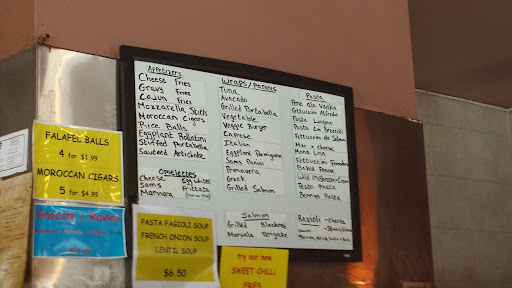 Appetizers
Cheese Fries
Gravy Fries
Cajun Fries
Mozzarella Sticks
Moroccan Cigars
Rice Balls
Eggplant Rollatini
Stuffed Portabella
Sauteed Artichoke
Omelettes
Cheese Egg Whites
Sams Frittata
Marinara
Wraps / Paninis
Tuna
Avocado
Grilled Portabella
Vegetable
Veggie Burger
Caprese
Italian
Eggplant Parmigiana
Sams Panini
Primavera
Greek
Grilled Salmon
Salmon
Grilled Blackened
Marsala Teriyaki
Pasta
Penne ala Vodka
Fettuccini Alfredo
Pasta
Pasta Broccoli
Fettuccini Salmon
Mac n Cheese
Fettuccini
Baked Penne
Wild Mushroom
Pesto Pasta
Pasta
Ravioli - Cheese
FALAFEL BALLS
4 for $1.99
MOROCCAN CIGARS
5 for $4.99
Gnocchi / Ravioli
PASTA FAGIOLI SOUP
FRENCH ONION SOUP
LENTIL SOUP
$6.50
try our new
SWEET CHILLI
FRIES